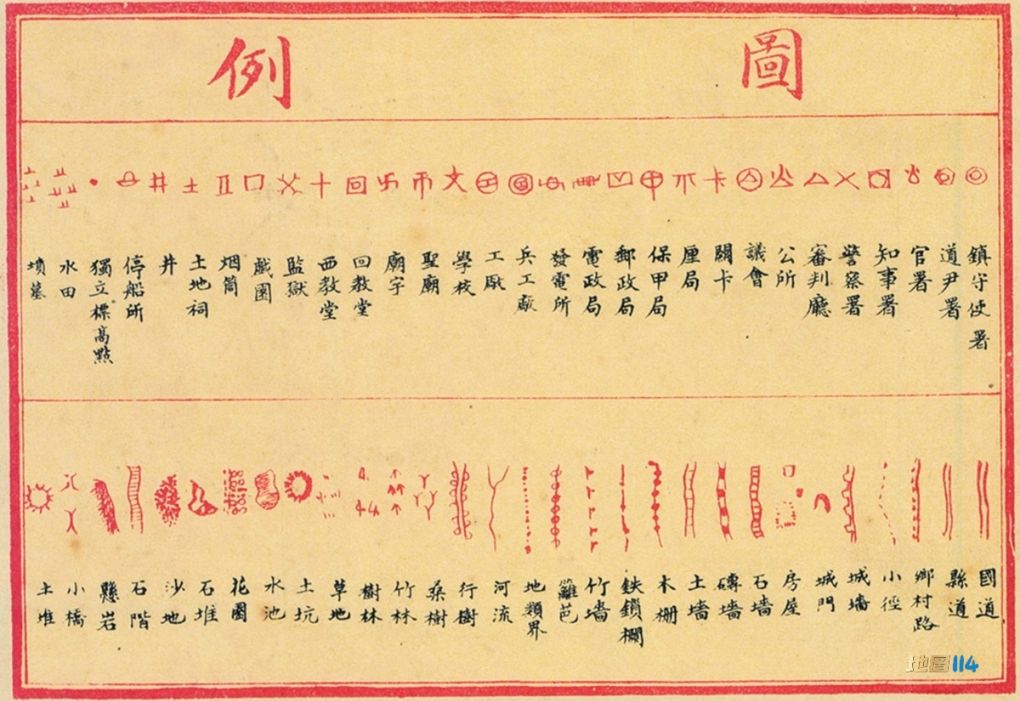 圖例
鎮守使署
道尹署
官署
知事署
警察署
審判廳
公所
議會
關卡
厘局
保甲局
郵政局
電政局
發電所
兵工廠
工廠
學校
聖廟
廟宇
回教堂
西教堂
監獄
戲園
烟筒
土地祠
井
停船所
獨立標高點
水田
墳墓
國道
縣道
鄉村路
小徑
城墻
城門
房屋
石墻
磚墻
土墻
木柵
鉄鎖欄
竹墻
籬笆
地類界
河流
行樹
桑樹
竹林
樹林
草地
土坑
水池
花園
石堆
沙地
石階
懸岩
小橋
土堆
地圖114